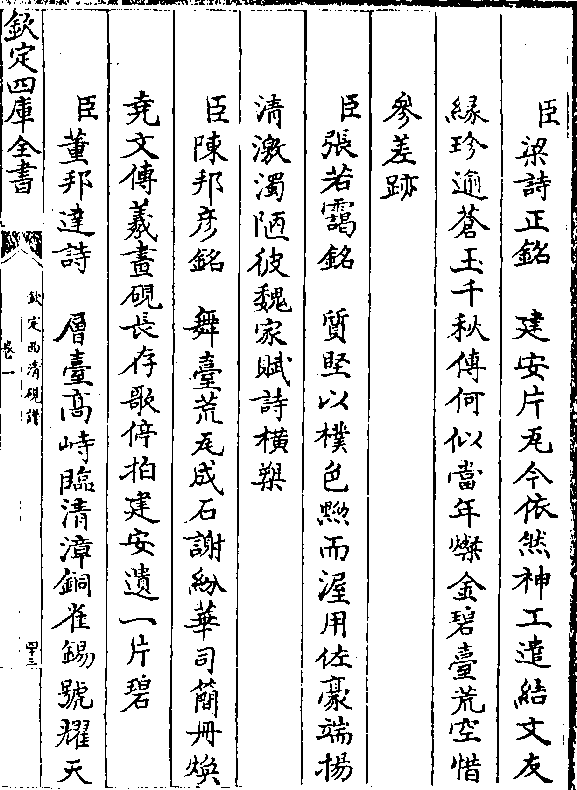 臣梁詩正銘　建安片瓦今依然神工遣結文友
緣珍逾蒼玉千秋傳何似當年燦金碧臺荒空惜
參差跡
臣張若靄銘　質堅以樸色黝而渥用佐豪端揚
清激濁陋彼魏家賦詩橫槊
臣陳邦彥銘　舞臺荒瓦成石謝紛華司簡冊煥
堯文傳羲畫硯長存歌停拍建安遺一片碧
臣董邦達詩　層臺高峙臨清漳銅雀錫號耀天
欽定四庫全書
欽定西清硯譜
卷一
四三